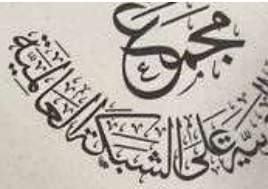 مجمع
على الشبكة العالمية